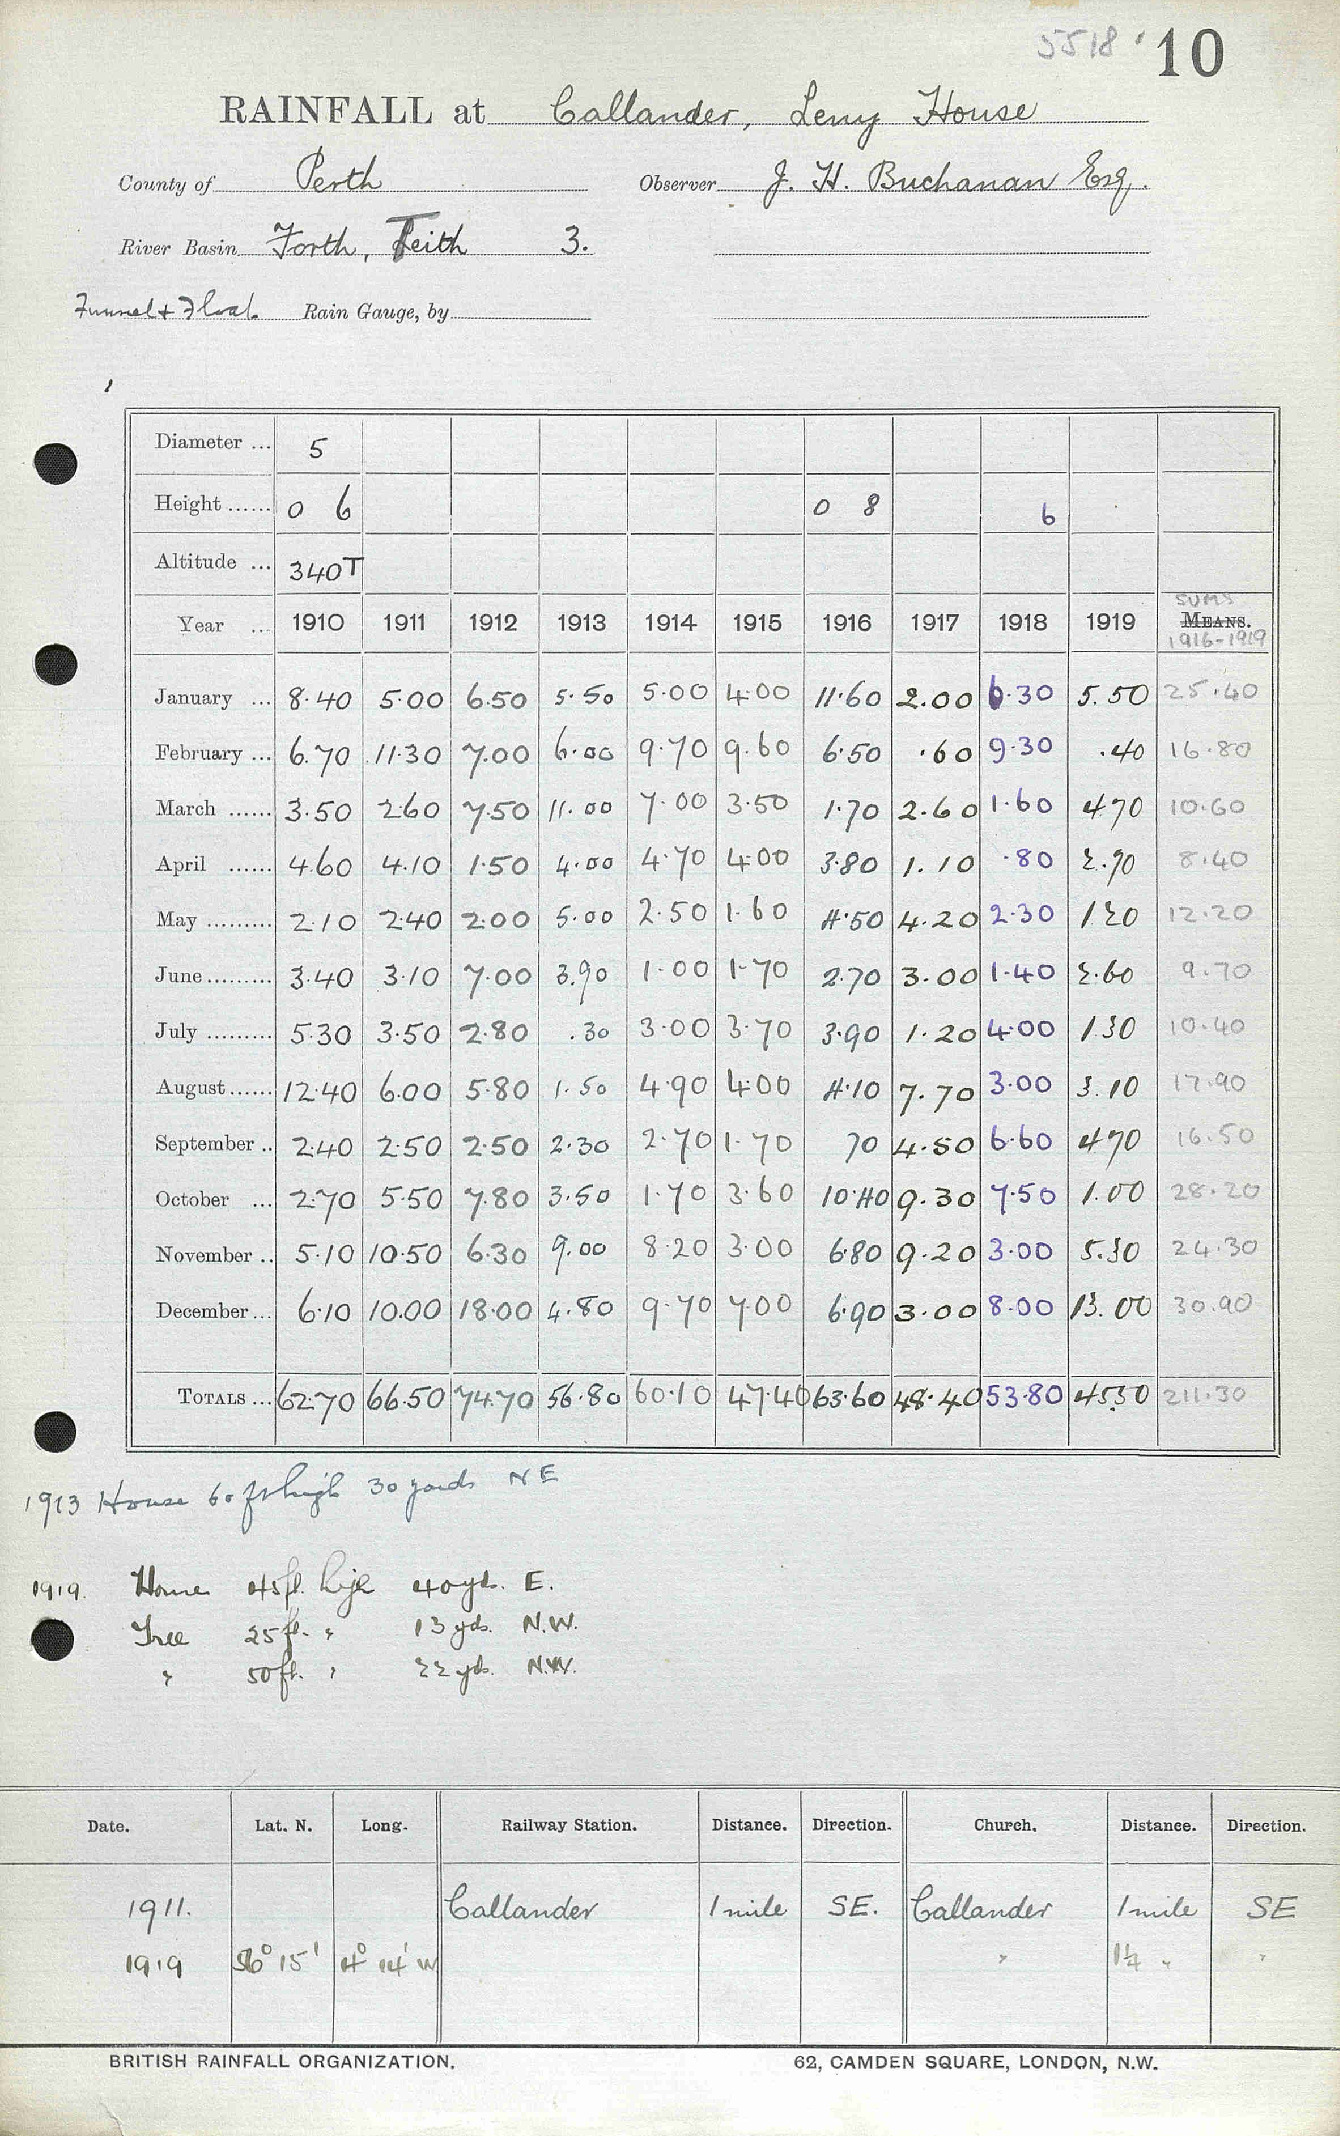 5518 10
RAINFALL at Callander, Leny House
County of Perth Observer J. H. Buchanan Esq.
River Basin Forth, Teith 3.
Funnel & Float Rain Gauge, by
Diameter ... 5
Height ...... 0 6 0 8 6
Altitude ... 340T
SUMS
Year ... 1910 1911 1912 1913 1914 1915 1916 1917 1918 1919 MEANS.
1916-1919
January ... 8.40 5.00 6.50 5.50 5.00 4.00 11.60 2.00 6.30 5.50 25.40
February ... 6.70 11.30 7.00 6.00 9.70 9.60 6.50 .60 9.30 .40 16.80
March ...... 3.50 2.60 7.50 11.00 7.00 3.50 1.70 2.60 1.60 4.70 10.60
April ...... 4.60 4.10 1.50 4.00 4.70 4.00 3.80 1.10 .80 2.70 8.40
May ......... 2.10 2.40 2.00 5.00 2.50 1.60 4.50 4.20 2.30 1.20 12.20
June ......... 3.40 3.10 7.00 3.90 1.00 1.70 2.70 3.00 1.40 2.60 9.70
July ......... 5.30 3.50 2.80 .30 3.00 3.70 3.90 1.20 4.00 1.30 10.40
August ...... 12.40 6.00 5.80 1.50 4.90 4.00 4.10 7.70 3.00 3.10 17.90
September .. 2.40 2.50 2.50 2.30 2.70 1.70 70 4.50 6.60 4.70 16.50
October ... 2.70 5.50 7.80 3.50 1.70 3.60 10.40 9.30 7.50 1.00 28.20
November .. 5.10 10.50 6.30 9.00 8.20 3.00 6.80 9.20 3.00 5.30 24.30
December ... 6.10 10.00 18.00 4.80 9.70 7.00 6.90 3.00 8.00 13.00 30.90
TOTALS ... 62.70 66.50 74.70 56.80 60.10 47.40 63.60 48.40 53.80 45.50 211.30
1913 House 60 ft high 30 yards NE
1919. House 45ft. high 40yds. E.
Tree 25ft. " 13 yds. N.W.
" 50ft. " 22 yds. N.W.
Date. Lat. N. Long. Railway Station. Distance. Direction. Church. Distance. Direction.
1911. Callander 1 mile SE. Callander 1 mile SE
1919 56° 15' 4° 14' W " 1¼ " "
BRITISH RAINFALL ORGANIZATION. 62, CAMDEN SQUARE, LONDON, N.W.